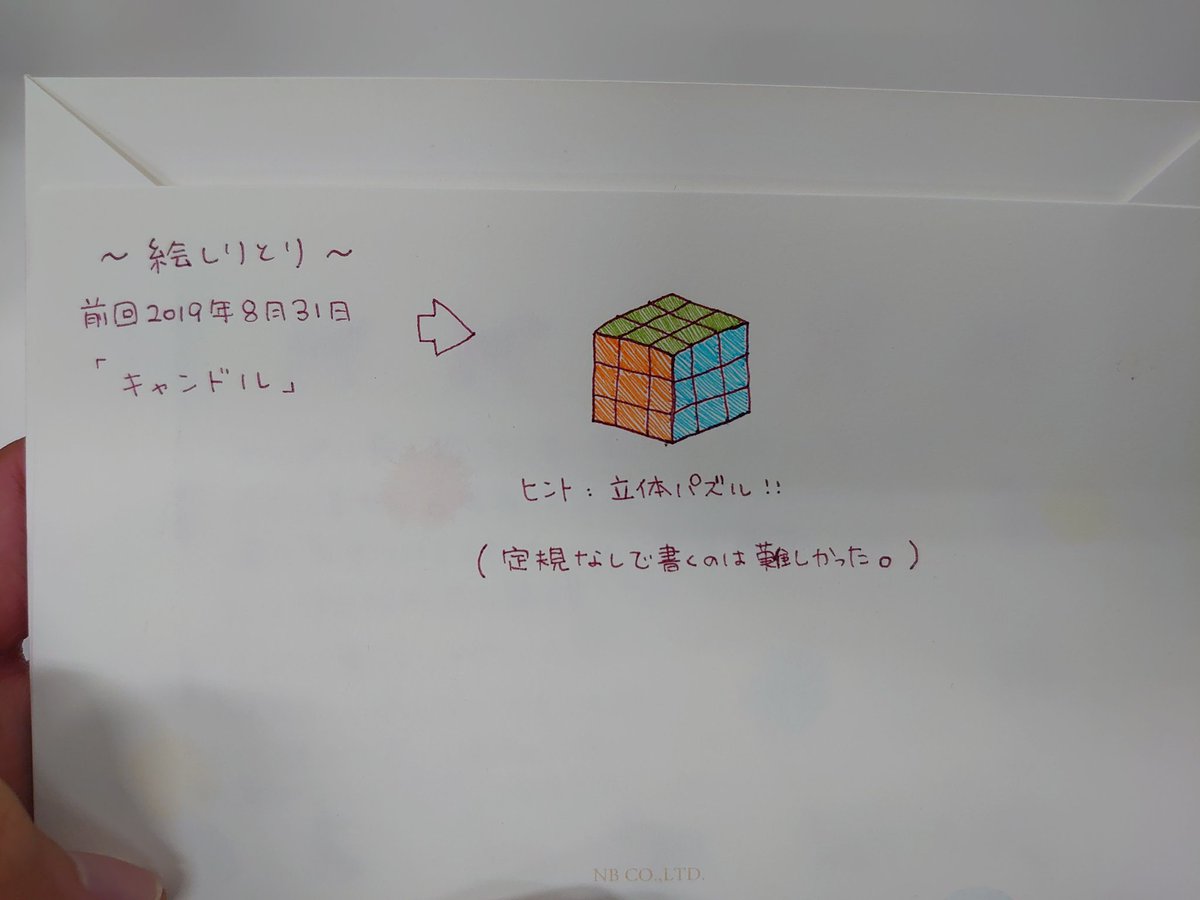 ～絵しりとり～
前回2019年8月31日
「キャンドル」
ヒント：立体パズル!!
(定規なしで書くのは難しかった。)
NB CO.,LTD.